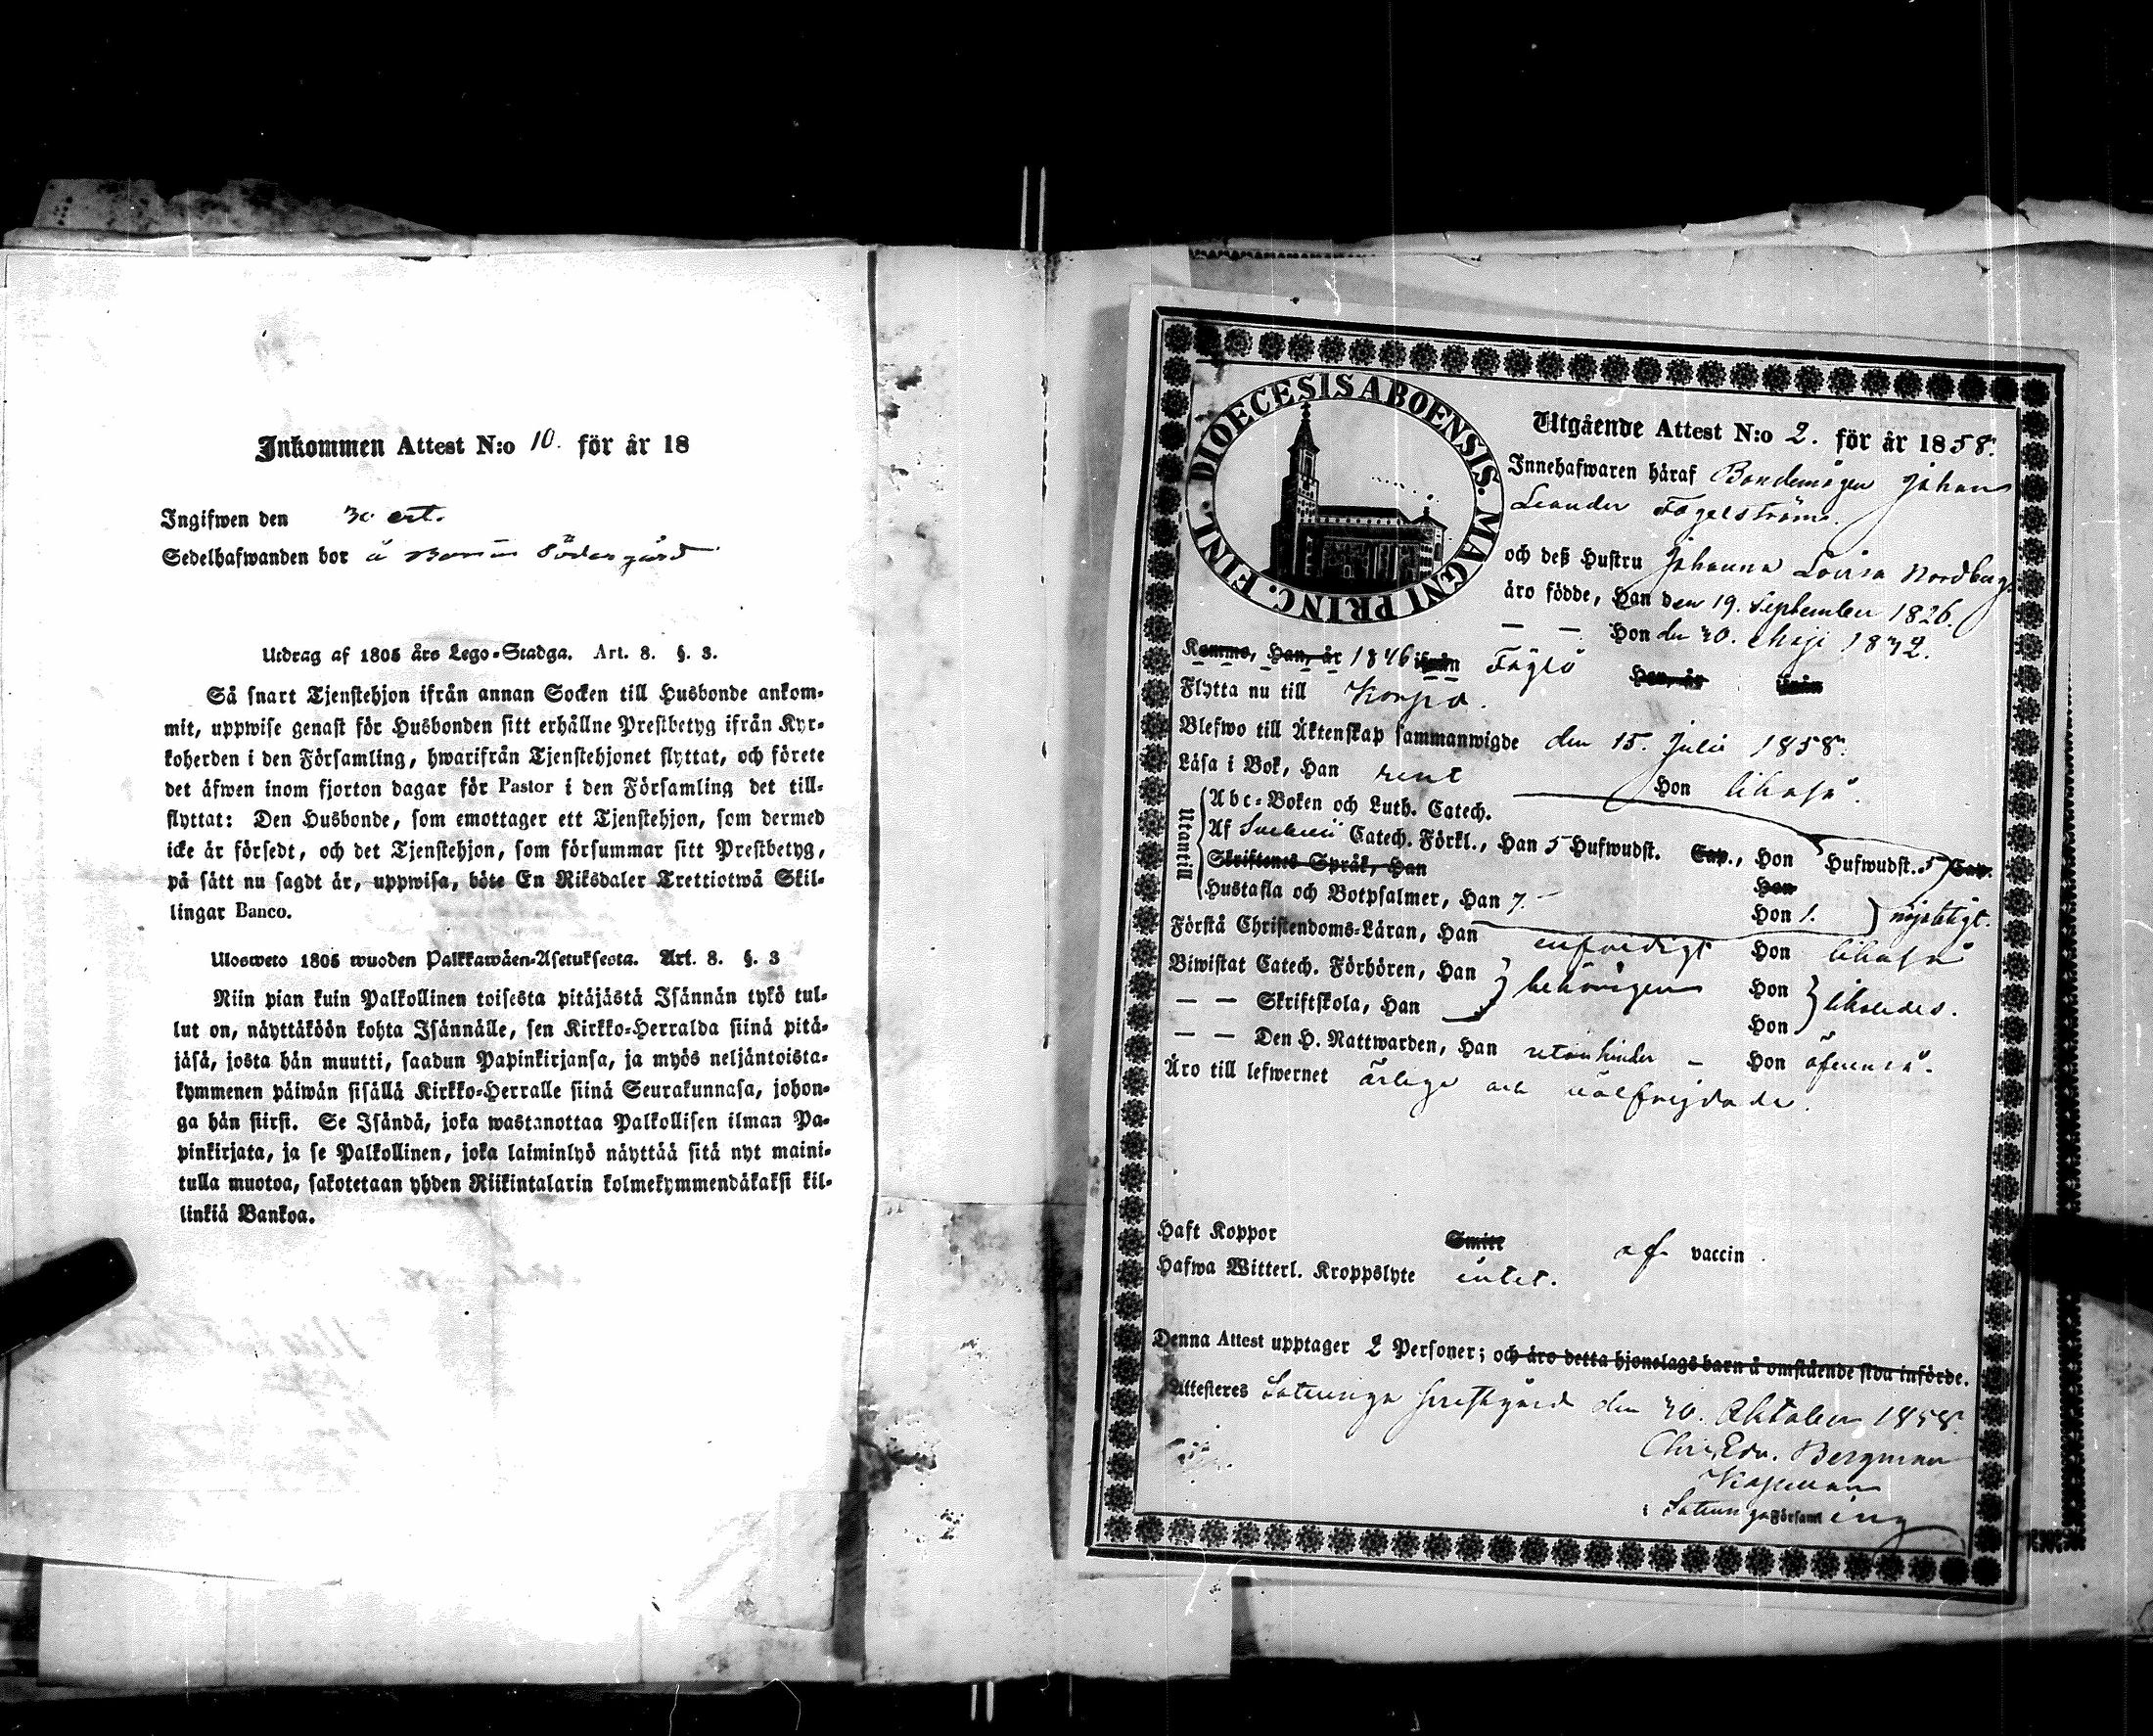 Inkommen Attest N:o 10. för år 18
Ingifwen den 30 
Sedelhafwanden bor å Södergård
Utdrag af 1805 års Lego-Stadga. Art. 8. §. 3.
Så snart Tjenstehjon ifrån annan Socken till Husbonde ankom-
mit, uppwise genast för Husbonden sitt erhållne Prestbetyg ifrån Kyr-
koherden i den Församling, hwarifrån Tjenstehjonet flyttat, och förete
det äfwen inom fjorton dagar för Pastor i den Församling det till-
flyttat: Den Husbonde, som emottager ett Tjenstehjon, som dermed
icke är försedt, och det Tjenstehjon, som försummar sitt Prestbetyg,
på sätt nu sagdt är, uppwisa, böte En Riksdaler Trettiotwå Skil-
lingar Banco.
Ulosweto 1805 wuoden Palkkawäen-Asetuksesta. Art. 8. §. 3
Niin pian kuin Palkollinen toisesta pitäjästä Isännän tykö tul-
lut on, näyttäköön kohta Isännälle, sen Kirkko-Herralda siinä pitä-
jäsä, josta hän muutti, saadun Papinkirjansa, ja myös neljäntoista-
kymmenen päiwän sisällä Kirkko-Herralle siinä Seurakunnasa, johon-
ga hän siirsi. Se Isändä, joka wastanottaa Palkollisen ilman Pa-
pinkirjata, ja se Palkollinen, joka laiminlyö näyttää sitä nyt maini-
tulla muotoa, sakotetaan yhden Riikintalarin kolmekymmendäkaksi kil-
linkiä Bankoa.
DIOECESIS ABOENSIS. MAGNI PRINC. FINL.
Utgående Attest N:o 2. för år 1858.
Innehafwaren häraf Bondemågen Johan
Leander Fagelström
och deß Hustru Johanna Lovisa Nordberg
äro födde, Han den 19. September 1826.
— — Hon den 30. Maji 1832.
Kommo, Han, år 1846 ifrån Föglö Han, år ifrån
Flytta nu till Korpo.
Blefwo till Äktenskap sammanwigde den 15. Julii 1858.
Läsa i Bok, Han rent Hon likaså.
Utantill
Abc-Boken och Luth. Catech.
Af Svebelii Catech. Förkl., Han 5 Hufwudst. Cap., Hon Hufwudst. 5 Cap.
Skriftenes Språk, Han Hon
Hustafla och Botpsalmer, Han 7. Hon 1. nöjaktigt.
Förstå Christendoms-Läran, Han enfaldigt Hon likaså
Biwistat Catech. Förhören, Han behörigen Hon likaledes.
— — Skriftskola, Han Hon
— — Den H. Nattwarden, Han utan hinder — Hon äfvenså.
Äro till lefwernet ärlige och välfrejdade.
Haft Koppor Smitt af vaccin.
Hafwa Witterl. Kroppslyte intet.
Denna Attest upptager 2 Personer; och äro detta hjonelags barn å omstående sida införde.
Attesteres Satunga prestgård den 30. Oktober 1858.
Chr. Edv. Bergman
Kapellan
i Satunga Församling